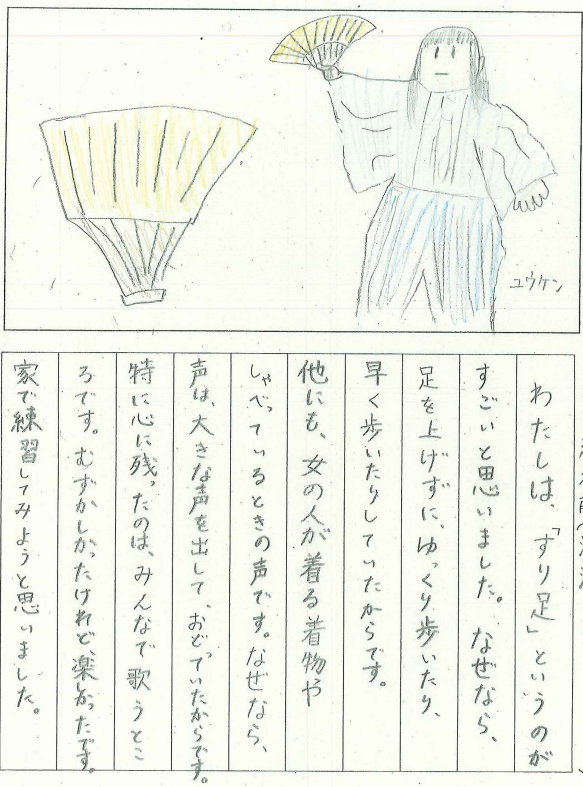 ユウケン
わたしは、「すり足」というのが
すごいと思いました。なぜなら、
足を上げずに、ゆっくり歩いたり、
早く歩いたりしていたからです。
他にも、女の人が着る着物や
しゃべっているときの声です。なぜなら、
声は、大きな声を出して、おどっていたからです。
特に心に残ったのは、みんなで歌うとこ
ろです。むずかしかったけれど、楽しかったです。
家で練習してみようと思いました。